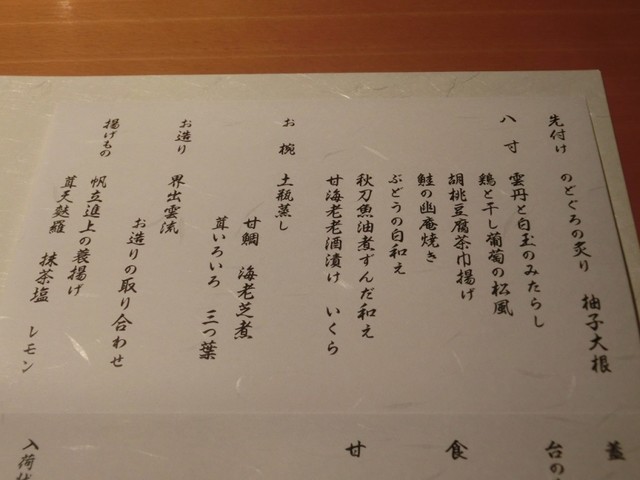 先付け　のどぐろの炙り　柚子大根
八寸　雲丹と白玉のみたらし
鶏と干し葡萄の松風
胡桃豆腐茶巾揚げ
鮭の幽庵焼き
ぶどうの白和え
秋刀魚油煮ずんだ和え
甘海老老酒漬け　いくら
お椀　土瓶蒸し
甘鯛　海老芝煮
茸いろいろ　三つ葉
お造り　界出雲流
お造りの取り合わせ
揚げもの　帆立進上の蓑揚げ
茸天麩羅　抹茶塩　レモン
蓋
台の
食
甘
入荷状